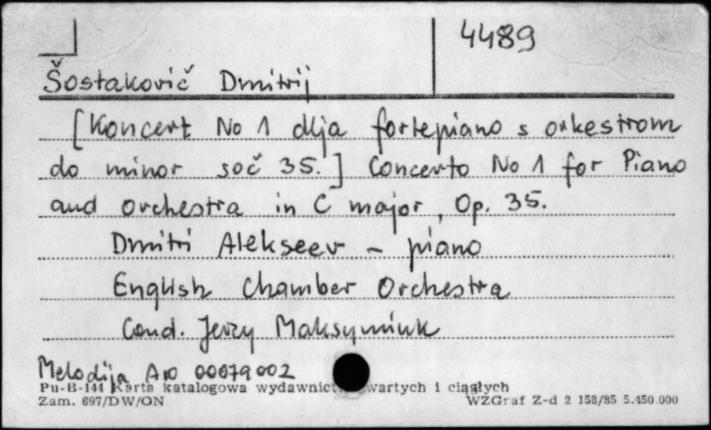 4489
Šostakovič Dmitrij
[Koncert No 1 dlja fortepiano s orkestrom
do minor soč 35.] Concerto No 1 for Piano
and orchestra in C major, Op. 35.
Dmitri Alekseev - piano
English Chamber Orchestra
Cond. Jerzy Maksymiuk
Melodija A10 00079002
Pu-B-144 Karta katalogowa wydawnict wartych i ciągłych
Zam. 697/DW/ON WZGraf Z-d 2 158/85 5.450.000